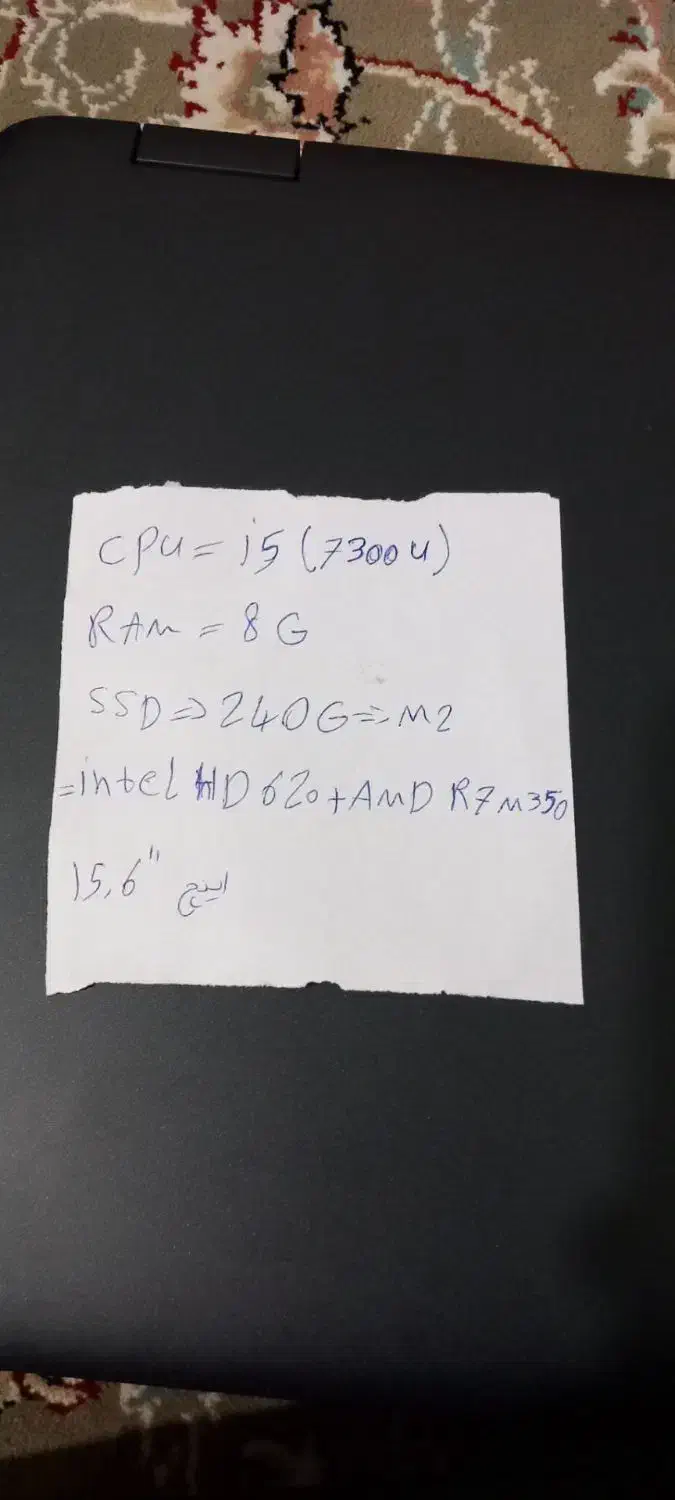 CPU = i5 (7300U)
RAM = 8 G
SSD => 240G => M2
= intel HD 620 + AMD R7 M350
15,6" اینچ